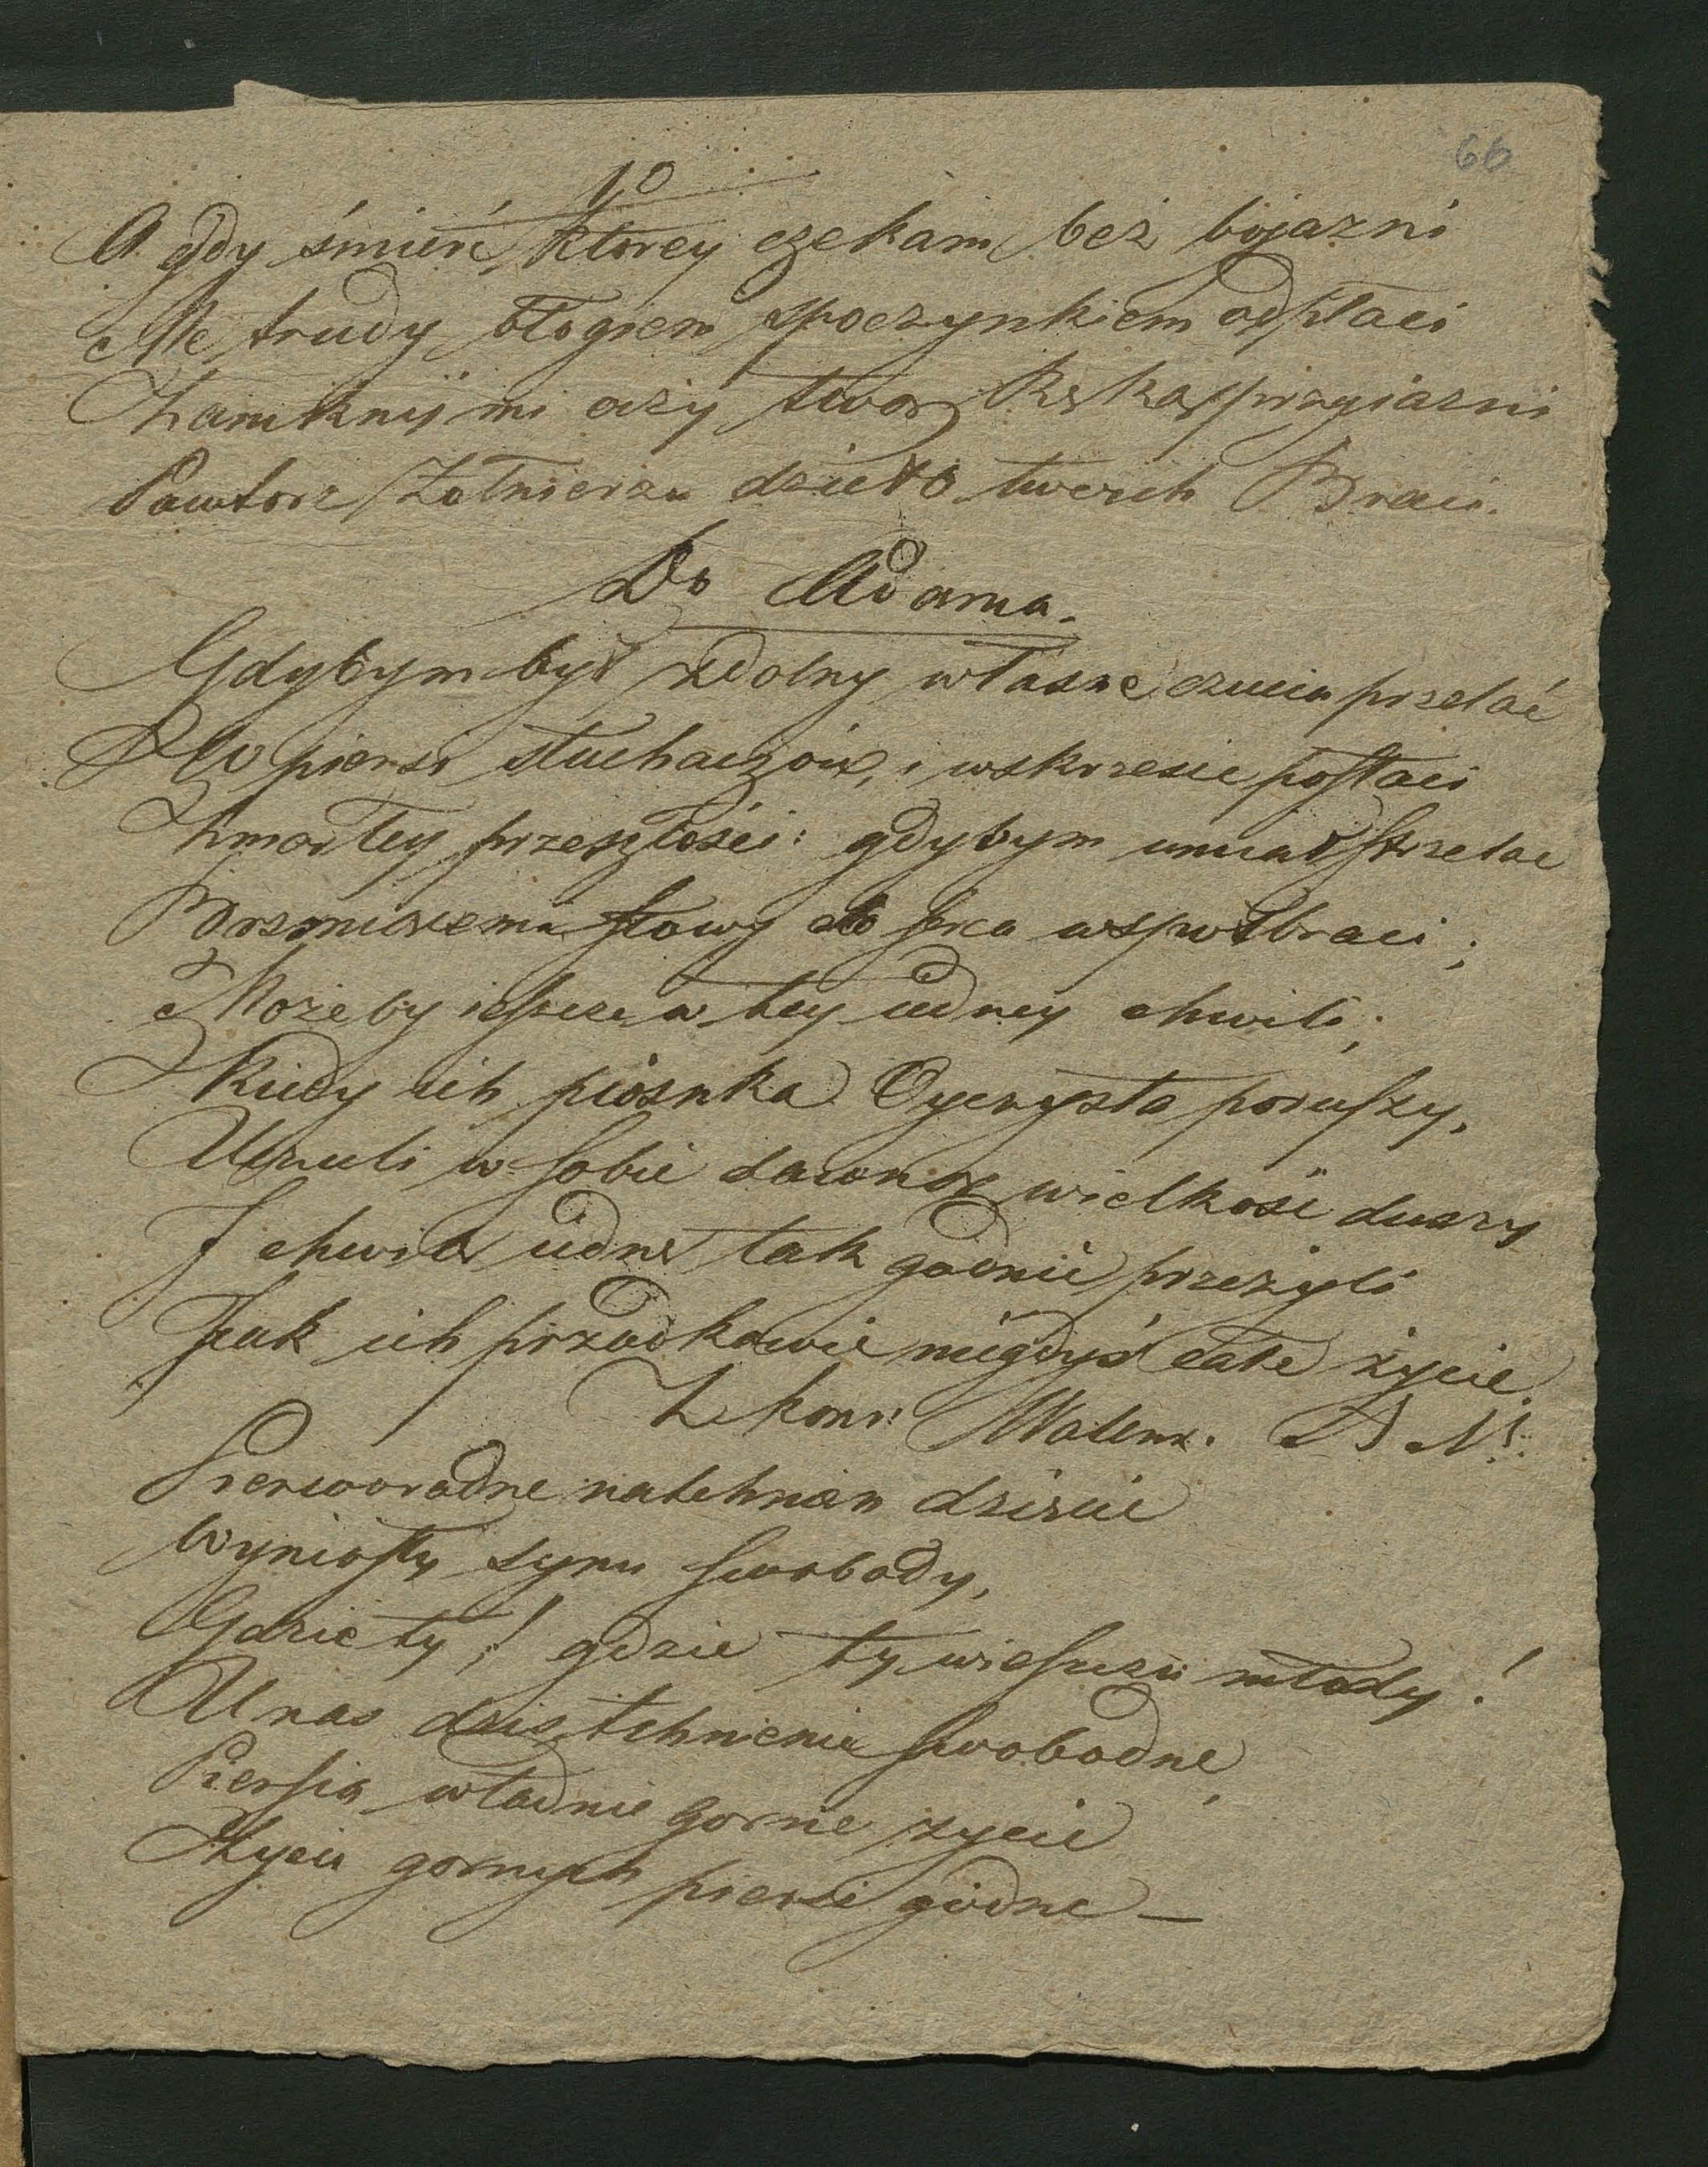 66
10
A gdy śmierć, ktorey czekam bez bojazni
Me trudy błogiem spoczynkiem odpłaci
Zamknij mi oczy twoą ręką przyiazni
Powtorz Żołnierzu dzieło twoich Braci.
Do Adama.
Gdybym był zdolny własne czucia przelać
W piersi słuchaczów, i wskrzesić postaci
Zmarłey przeszłości: gdybym umiał strzelac
Brzmiącemi słowy do serca wspołbraci;
Możeby ieszcze w tey iedney chwili;
Kiedy ich piosnka Oyczysta poruszy,
Uczuli w sobie dawną wielkość duszy
I chwilę iedną tak godnie przeżyli
Jak ich przodkowie niegdyś całe życie.
Z konr: Wallenr.
Pierworodne natchnień dziecie
Wyniosły synu swobody,
Gdzie ty! gdzie ty wieszczu młody!
U nas dziś tchnienia swobodne,
Piersią władnie gorne życie
Życia gornych piersi godne —